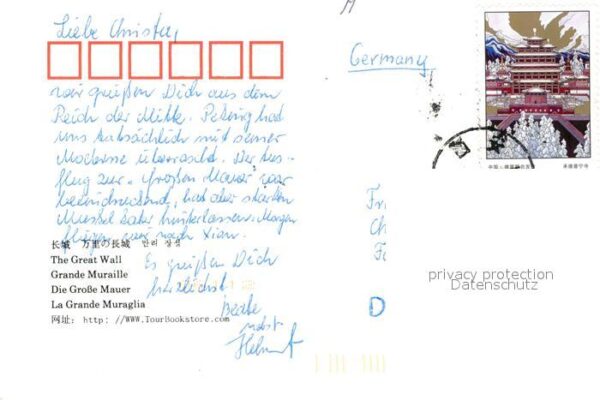 Liebe Christa,
wir grüßen Dich aus dem
Reich der Mitte. Peking hat
uns tatsächlich mit seiner
Moderne überrascht. Der Aus-
flug zur "Großen Mauer" war
beeindruckend, hat aber starken
Muskelkater hinterlassen. Morgen
fliegen wir nach Xian.
Es grüßen Dich
herzlichst
Beate
nebst
Helmut
长城 万里の長城 만리 장성
The Great Wall
Grande Muraille
Die Große Mauer
La Grande Muraglia
网址: http: //WWW.TourBookstore.com/
Germany
Fr
Ch
D
privacy protection
Datenschutz